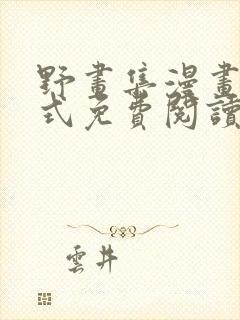 野畫集漫畫
式免費閱讀
雲井